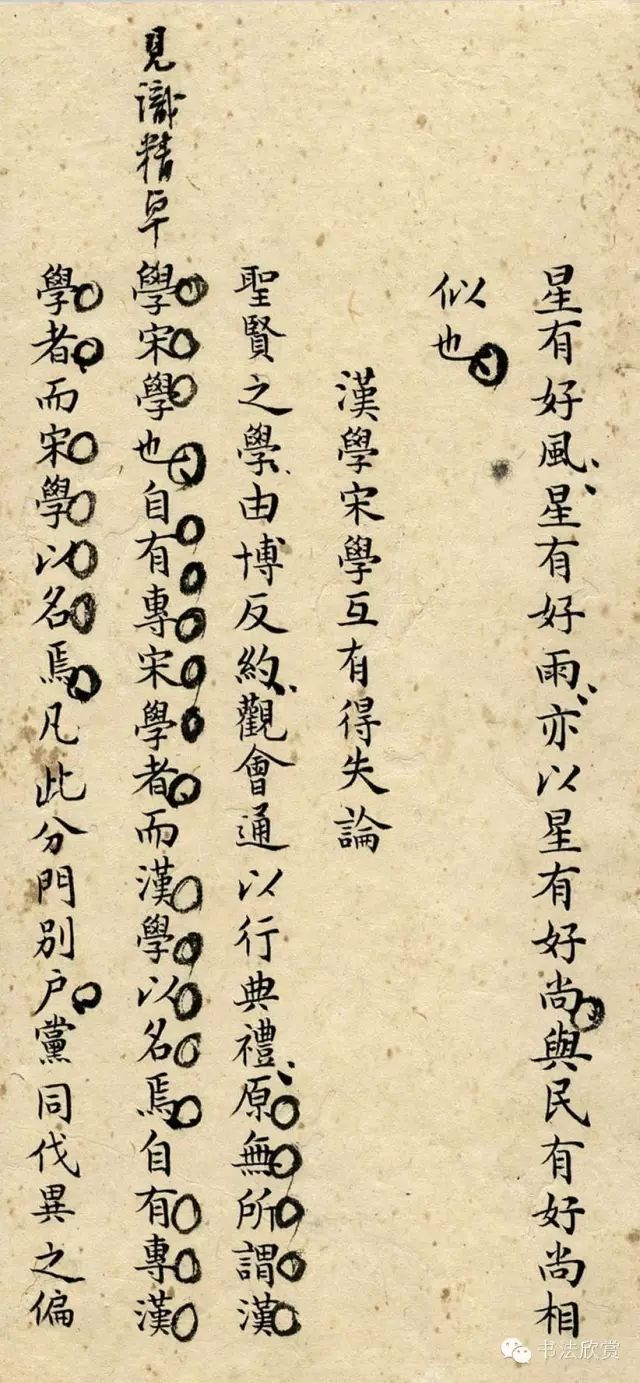 星有好風星有好雨亦以星有好尚與民有好尚相
似也
漢學宋學互有得失論
聖賢之學由博反約觀會通以行典禮原無所謂漢
學宋學也自有專宋學者而漢學以名焉自有專漢
學者而宋學以名焉凡此分門別户黨同伐異之偏
見識精卓
书法欣赏